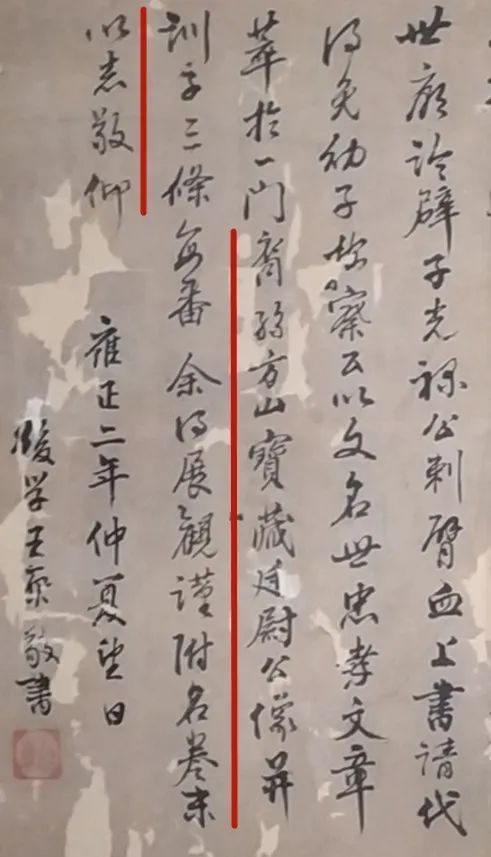 世廟論辟子光祿公刺臂血上書請代
得免幼子按察公以文名世忠孝文章
萃於一門裔孫方山寶藏廷尉公像并
訓子三條每番余得展觀謹附名卷末
以志敬仰 雍正二年仲夏望日
後學王敬書